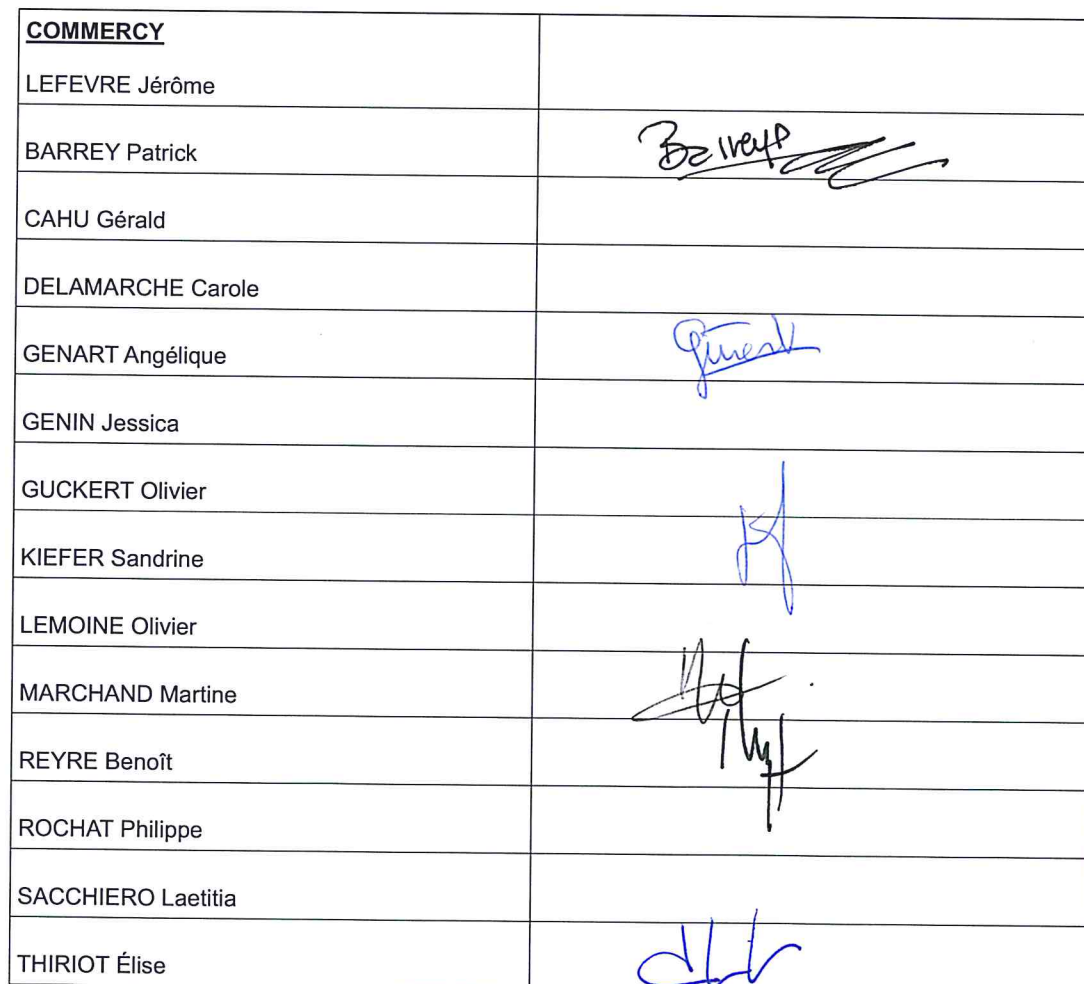 COMMERCY
LEFEVRE Jérôme
BARREY Patrick
CAHU Gérald
DELAMARCHE Carole
GENART Angélique
GENIN Jessica
GUCKERT Olivier
KIEFER Sandrine
LEMOINE Olivier
MARCHAND Martine
REYRE Benoît
ROCHAT Philippe
SACCHIERO Laetitia
THIRIOT Élise